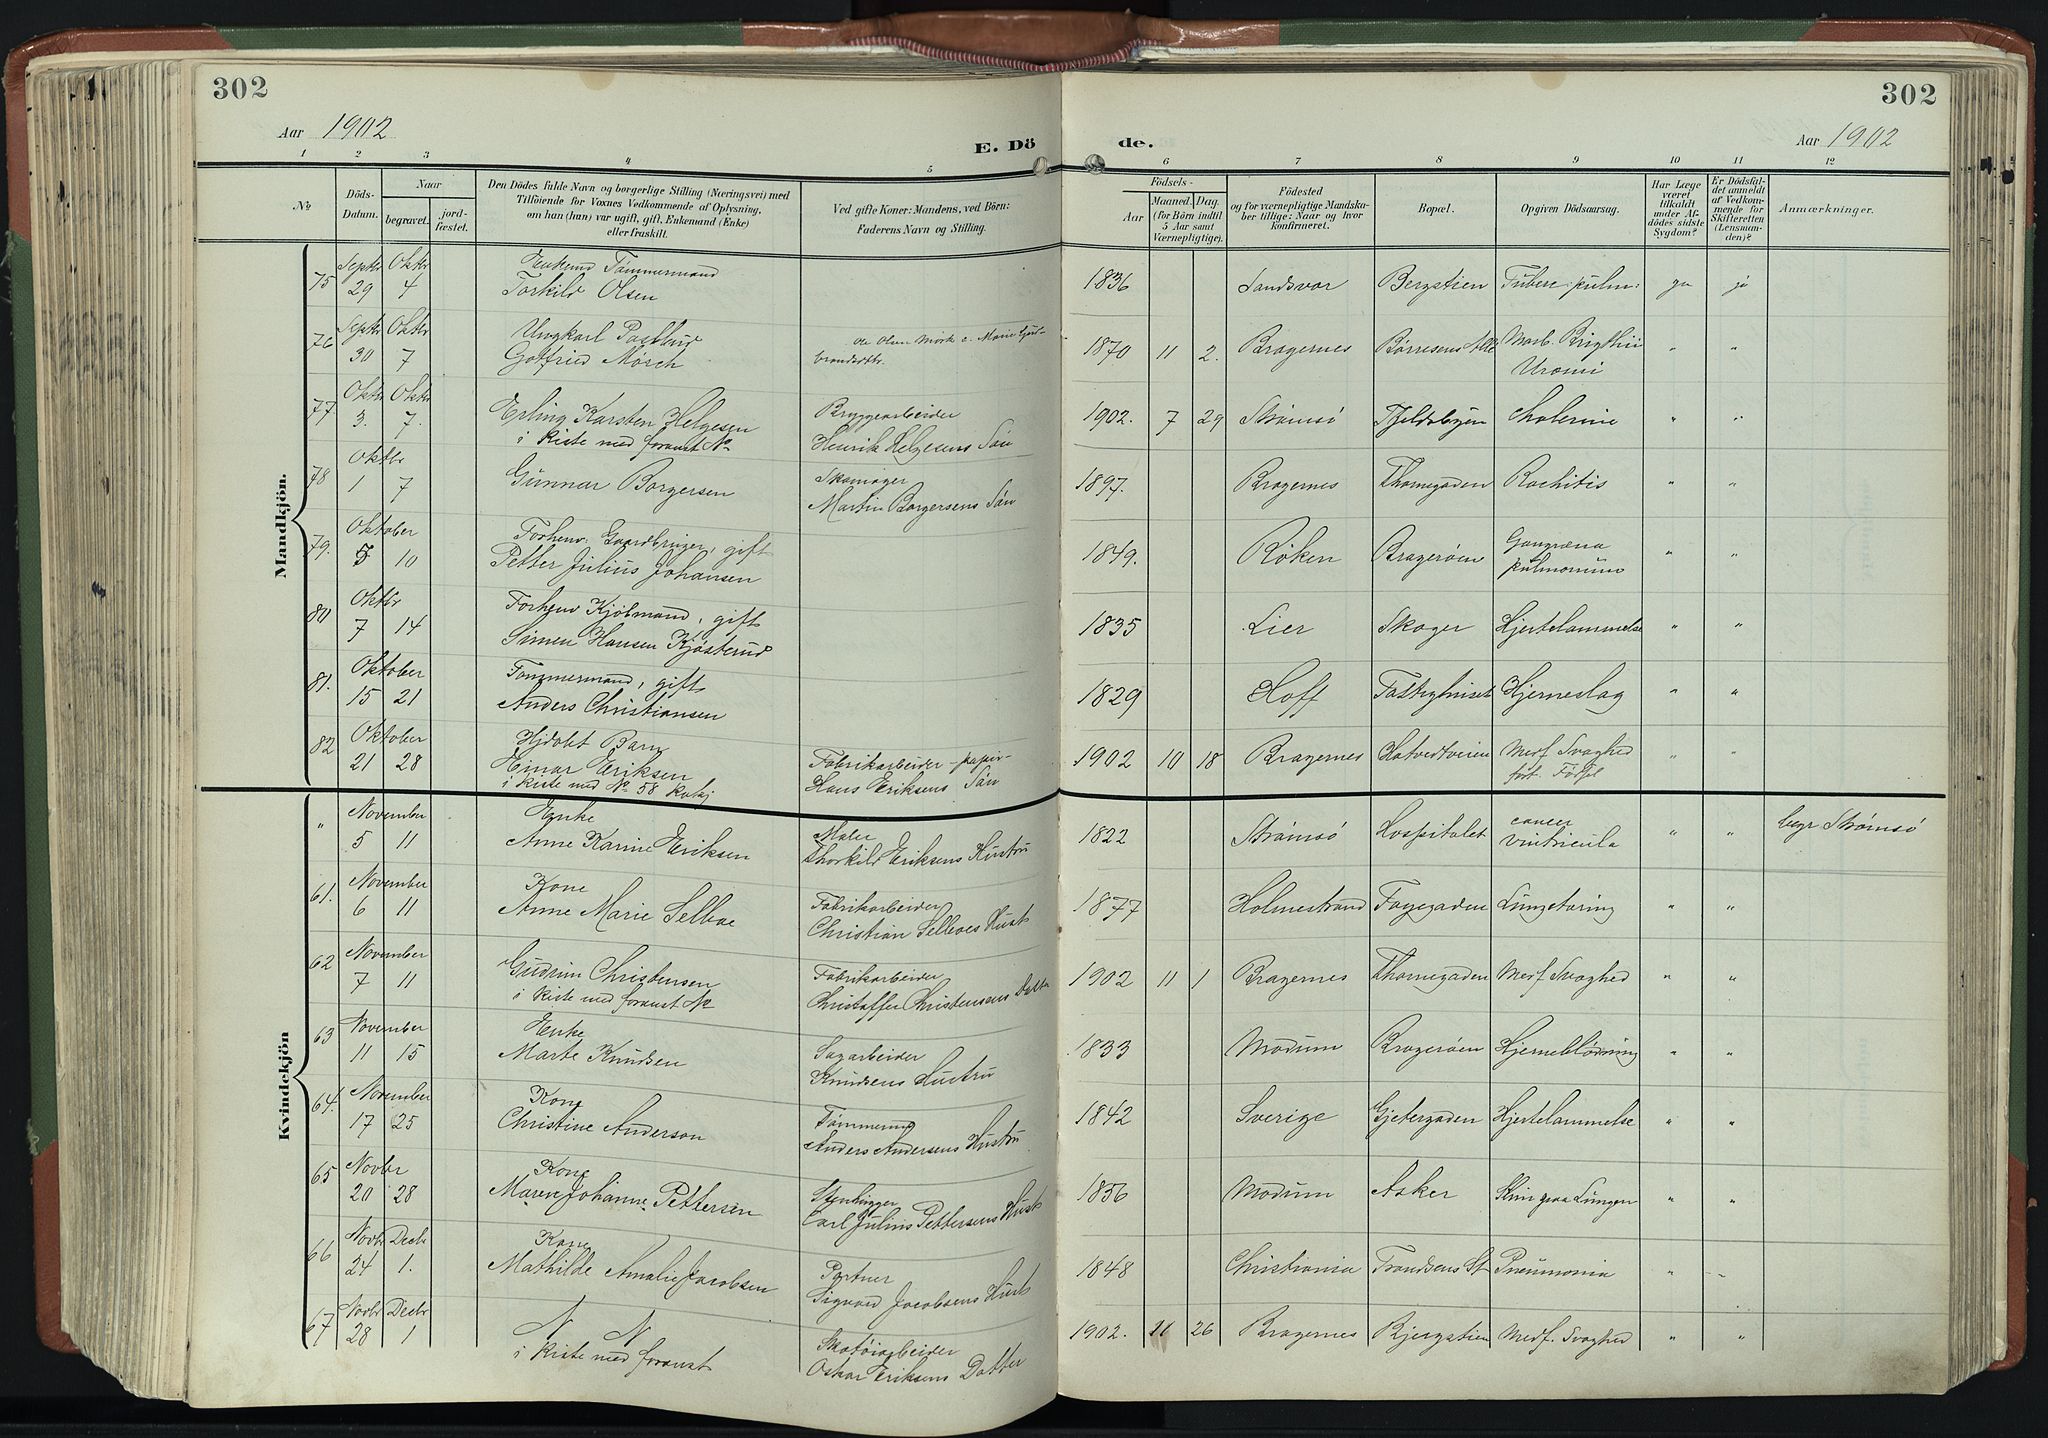 302
302
Aar 1902
E. Dö
de.
Aar 1902
1 2 3 4 5 6 7 8 9 10 11 12
No
Döds-Datum.
Naar
begravet.
jord-fæstet.
Den Dödes fulde Navn og borgerlige Stilling (Næringsvei) med
Tilföiende for Voxnes Vedkommende af Oplysning,
om han (hun) var ugift, gift, Enkemand (Enke)
eller fraskilt.
Ved gifte Koner: Mandens, ved Börn:
Faderens Navn og Stilling.
Födsels-
Aar
Maaned. Dag.
(for Börn indtil
5 Aar samt
Værnepligtige).
Födested
og for værnepligtige Mandska-
ber tillige: Naar og hvor
konfirmeret.
Bopæl.
Opgiven Dödsaarsag.
Har Læge
været
tilkaldt
under Af-
dödes sidste
Sygdom?
Er Dödsfal-
det anmeldt
af Vedkom-
mende for
Skifteretten
(Lensman-
den)?
Anmærkninger.
Mandkjön.
75 Septbr 29 Oktbr 4 Enkemd Tømmermand
Torkild Olsen 1836 Sandsvær Bergstien Tuberc. pulm: ja ja
76 Septbr 30 Oktbr 7 Ungkarl Postbud
Gotfried Mörch 1870 11 2. Bragernes Börresens Alle Morb. Brigthii
Uræmi " "
77. Oktbr 3. Oktbr 7. Erling Karsten Helgesen
i kiste med foranst No
Bryggearbeider
Henrik Helgesens Sön 1902. 7 29 Strömsö Fjeldsbyen Kolerine " "
78 Oktbr 1 7 Gunnar Borgersen
Skomager
Martin Borgersens Sön 1897. Bragernes Thornegaden Rachitis " "
79. Oktober 5 10 Forhenv. Gaardbruger, gift
Petter Julius Johansen 1849. Röken Bragerøen Gangræna
pulmonum " "
80 Oktbr 7 14 Forhenv Kjöbmand, gift
Simen Hansen Kjösterud 1835 Lier Skoger Hjertelammelse " "
81. Oktober 15 21 Tömmermand, gift
Anders Christiansen 1829 Hoff Fattighuset Hjerneslag " "
82 Oktober 21 28 Hjdöbt Barn
Einar Eriksen
i kiste med No 58 kvkj
Fabrikarbeider – papir-
Hans Eriksens Sön 1902 10 18 Bragernes Hotvedtveien Medf Svaghed
fört. Födsel " "
Kvindekjön
" November 5 11 Enke
Anne Karine Eriksen
Maler
Thorkild Eriksens Hustru 1822 Strömsö Hospitalet cancer
vintricula " " begr Strömsö
61. November 6 11 Kone
Anne Marie Selboe
Fabrikarbeider
Christian Selboes Hust 1877 Holmestrand Fayegaden Lungetæring " "
62 November 7 11 Gudrun Christensen
i kiste med foranst No
Fabrikarbeider
Christoffer Christensens Datter 1902 11 1 Bragernes Thornegaden Medf Svaghed " "
63 November 11 15 Enke
Marte Knudsen
Sagarbeider
Knudsens Hustru 1833 Modum Bragerøen Hjerneblödning " "
64. November 17 25 Kone
Christine Anderson
Tömmermd
Anders Andersens Hustru 1842 Sverige Gjetergaden Hjertelammelse " "
65 Novbr 20 28 Kone
Maren Johanne Pettersen
Stenhugger
Carl Julius Pettersens Hust 1856 Modum Asker Slim paa Lungen " "
66 Novbr 24 Decbr 1. Kone
Mathilde Amalie Jacobsen
Portner
Sigvard Jacobsens Hust 1848 Christiania Trondsens St Pneumonia " "
67 Novbr 28 Decbr 1 N N
i kiste med foranst
Skotöiarbeider
Oskar Eriksens Datter 1902. 11 26 Bragernes Bjergstien Medf. Svaghed " "